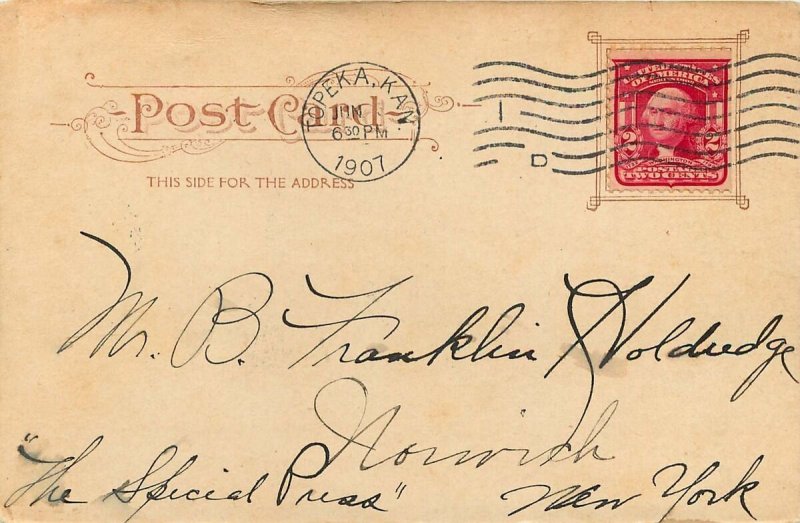 Post Card
THIS SIDE FOR THE ADDRESS
TOPEKA, KAN.
6 30 PM
1907
1
D
UNITED STATES
OF AMERICA
2 2
WASHINGTON
POSTAGE
TWO CENTS
Mr. B. Franklin Holdredge
Norwich
"The Special Press"
New York